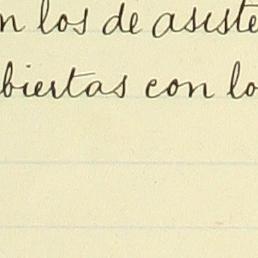 n los de asiste
biertas con lo